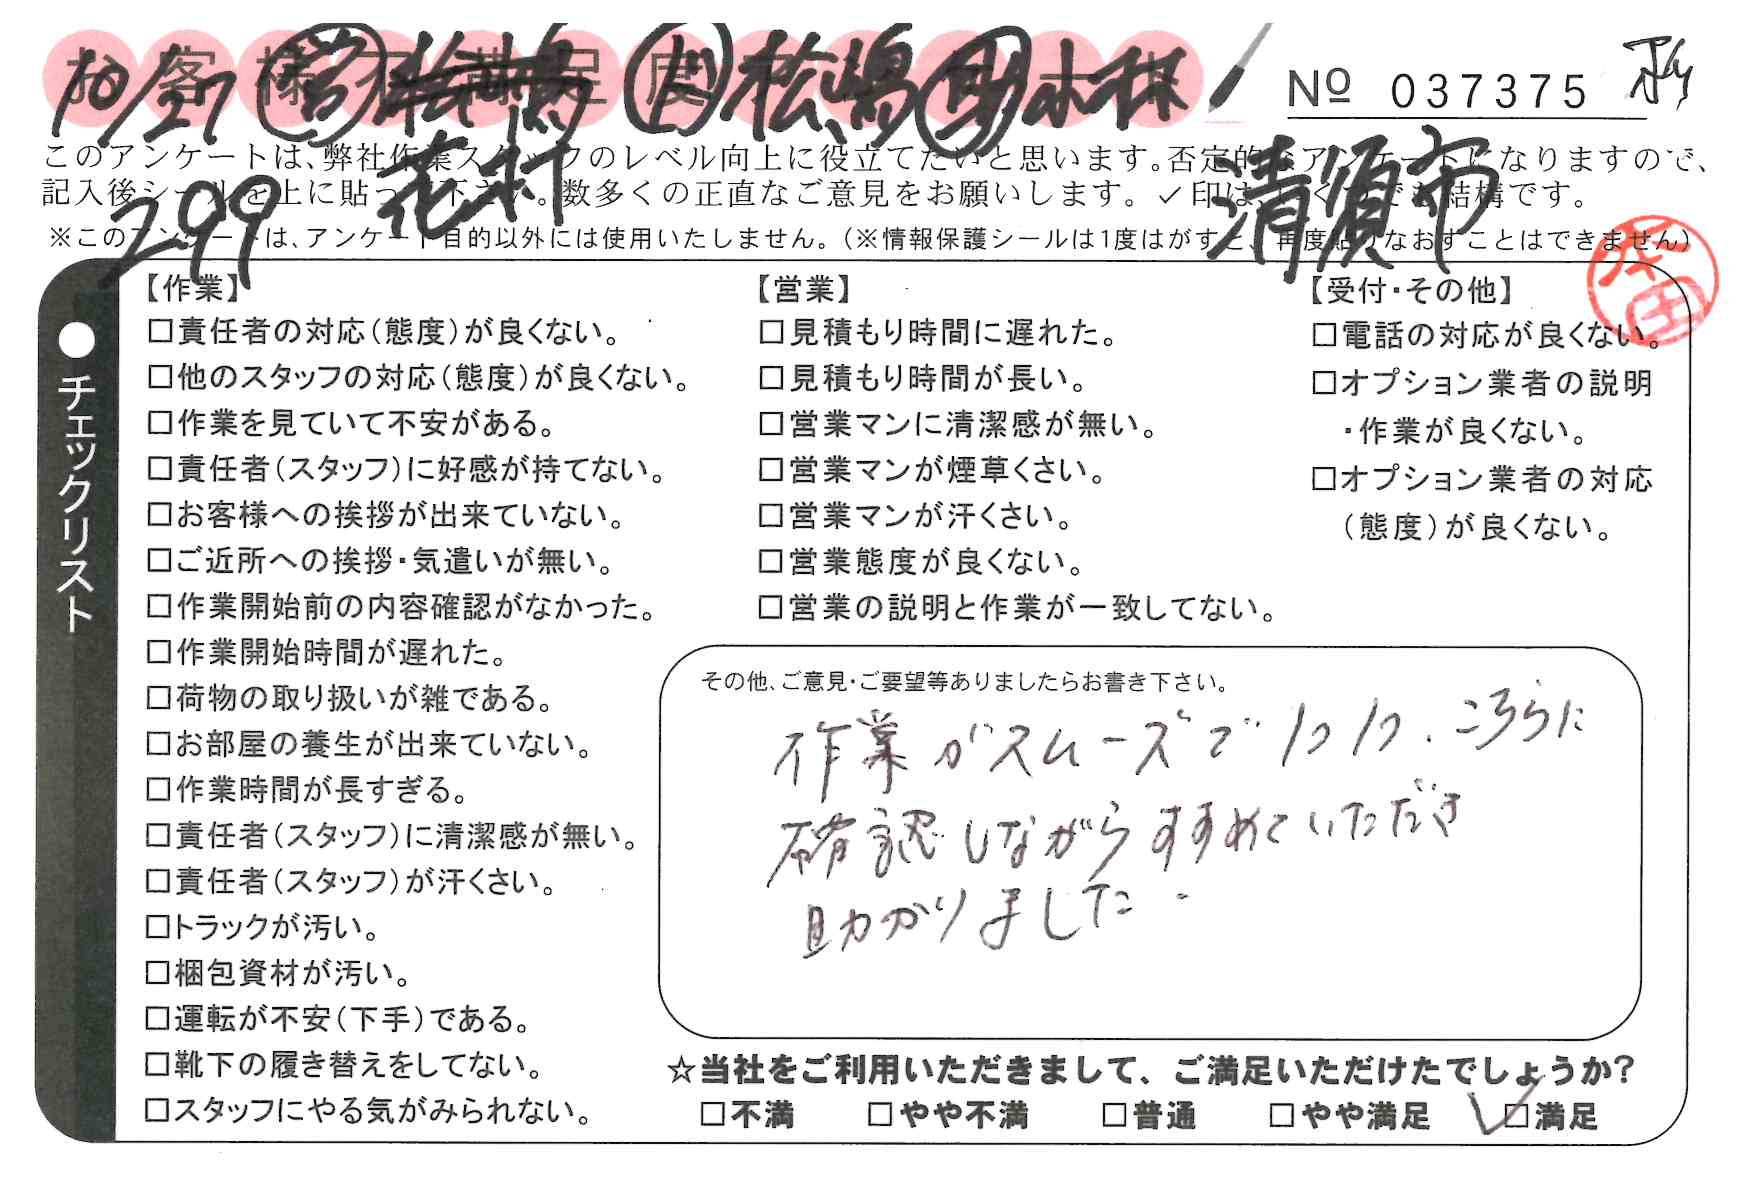 10/27 営 大 松嶋 助 木林
No 037375
このアンケートは、弊社作業スタッフのレベル向上に役立てたいと思います。否定的なアンケートになりますので、
記入後シールを上に貼って下さい。数多くの正直なご意見をお願いします。✓印はいくつでも結構です。
299 花村 清須市
※このアンケートは、アンケート目的以外には使用いたしません。(※情報保護シールは1度はがすと、再度貼りなおすことはできません)
本田
●チェックリスト
【作業】
□責任者の対応(態度)が良くない。
□他のスタッフの対応(態度)が良くない。
□作業を見ていて不安がある。
□責任者(スタッフ)に好感が持てない。
□お客様への挨拶が出来ていない。
□ご近所への挨拶・気遣いが無い。
□作業開始前の内容確認がなかった。
□作業開始時間が遅れた。
□荷物の取り扱いが雑である。
□お部屋の養生が出来ていない。
□作業時間が長すぎる。
□責任者(スタッフ)に清潔感が無い。
□責任者(スタッフ)が汗くさい。
□トラックが汚い。
□梱包資材が汚い。
□運転が不安(下手)である。
□靴下の履き替えをしてない。
□スタッフにやる気がみられない。
【営業】
□見積もり時間に遅れた。
□見積もり時間が長い。
□営業マンに清潔感が無い。
□営業マンが煙草くさい。
□営業マンが汗くさい。
□営業態度が良くない。
□営業の説明と作業が一致してない。
【受付・その他】
□電話の対応が良くない。
□オプション業者の説明
・作業が良くない。
□オプション業者の対応
(態度)が良くない。
その他、ご意見・ご要望等ありましたらお書き下さい。
作業がスムーズで1つ1つ、こちらに
確認しながらすすめていただき
助かりました。
☆当社をご利用いただきまして、ご満足いただけたでしょうか?
□不満 □やや不満 □普通 □やや満足 ✓□満足